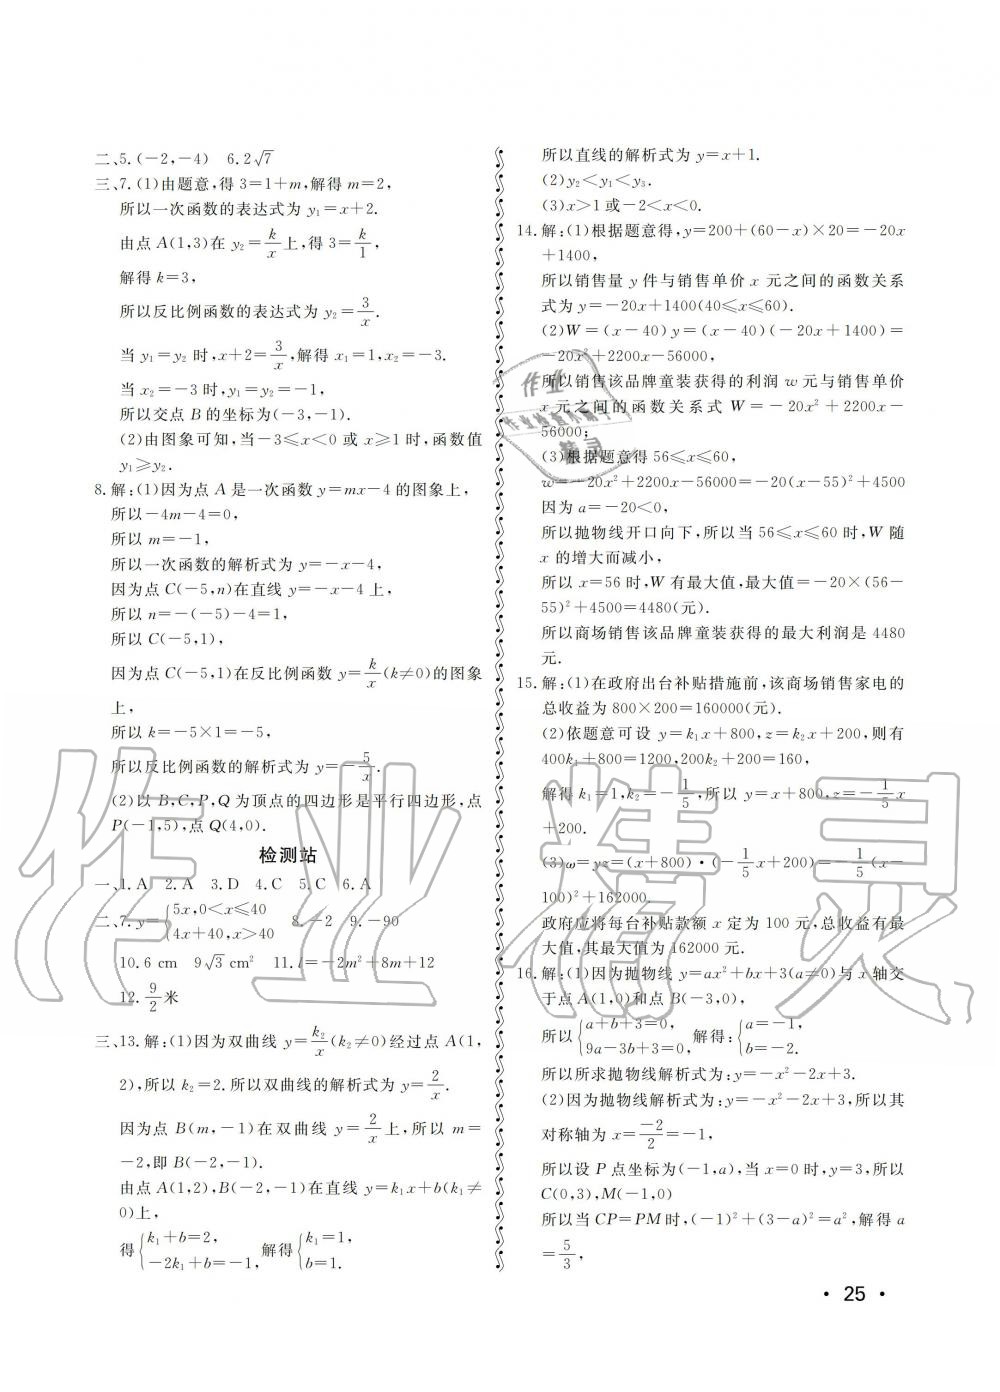 二、5.(-2,-4)　6.2√7
三、7.(1)由题意,得 3=1+m,解得 m=2,
所以一次函数的表达式为 y₁=x+2.
由点 A(1,3)在 y₂=k/x 上,得 3=k/1,
解得 k=3,
所以反比例函数的表达式为 y₂=3/x.
当 y₁=y₂ 时,x+2=3/x,解得 x₁=1,x₂=-3.
当 x₂=-3 时,y₁=y₂=-1,
所以交点 B 的坐标为(-3,-1).
(2)由图象可知,当-3≤x<0 或 x≥1 时,函数值
y₁≥y₂.
8.解:(1)因为点 A 是一次函数 y=mx-4 的图象上,
所以-4m-4=0,
所以 m=-1,
所以一次函数的解析式为 y=-x-4,
因为点 C(-5,n)在直线 y=-x-4 上,
所以 n=-(-5)-4=1,
所以 C(-5,1),
因为点 C(-5,1)在反比例函数 y=k/x(k≠0)的图象
上,
所以 k=-5×1=-5,
所以反比例函数的解析式为 y=-5/x.
(2)以 B,C,P,Q 为顶点的四边形是平行四边形,点
P(-1,5),点 Q(4,0).
检测站
一、1.A　2.A　3.D　4.C　5.C　6.A
二、7.y={5x,0<x≤40　8.-2　9.-90
4x+40,x>40
10.6 cm　9√3 cm²　11.l=-2m²+8m+12
12.9/2米
三、13.解:(1)因为双曲线 y=k₂/x(k₂≠0)经过点 A(1,
2),所以 k₂=2.所以双曲线的解析式为 y=2/x.
因为点 B(m,-1)在双曲线 y=2/x上,所以 m=
-2,即 B(-2,-1).
由点 A(1,2),B(-2,-1)在直线 y=k₁x+b(k₁≠
0)上,
得{k₁+b=2,　解得{k₁=1,
-2k₁+b=-1,　b=1.
所以直线的解析式为 y=x+1.
(2)y₂<y₁<y₃.
(3)x>1 或-2<x<0.
14.解:(1)根据题意得,y=200+(60-x)×20=-20x
+1400,
所以销售量 y 件与销售单价 x 元之间的函数关系
式为 y=-20x+1400(40≤x≤60).
(2)W=(x-40)y=(x-40)(-20x+1400)=
-20x²+2200x-56000,
所以销售该品牌童装获得的利润 w 元与销售单价
x 元之间的函数关系式 W=-20x²+2200x-
56000;
(3)根据题意得 56≤x≤60,
w=-20x²+2200x-56000=-20(x-55)²+4500
因为 a=-20<0,
所以抛物线开口向下,所以当 56≤x≤60 时,W 随
x 的增大而减小,
所以 x=56 时,W 有最大值,最大值=-20×(56-
55)²+4500=4480(元).
所以商场销售该品牌童装获得的最大利润是 4480
元.
15.解:(1)在政府出台补贴措施前,该商场销售家电的
总收益为 800×200=160000(元).
(2)依题意可设 y=k₁x+800,z=k₂x+200,则有
400k₁+800=1200,200k₂+200=160,
解得 k₁=1,k₂=-1/5,所以 y=x+800,z=-1/5x
+200.
(3)ω=yz=(x+800)·(-1/5x+200)=-1/5(x-
100)²+162000.
政府应将每台补贴款额 x 定为 100 元,总收益有最
大值,其最大值为 162000 元.
16.解:(1)因为抛物线 y=ax²+bx+3(a≠0)与 x 轴交
于点 A(1,0)和点 B(-3,0),
所以{a+b+3=0,　解得:{a=-1,
9a-3b+3=0,　b=-2.
所以所求抛物线解析式为:y=-x²-2x+3.
(2)因为抛物线解析式为:y=-x²-2x+3,所以其
对称轴为 x=-2/2=-1,
所以设 P 点坐标为(-1,a),当 x=0 时,y=3,所以
C(0,3),M(-1,0)
所以当 CP=PM 时,(-1)²+(3-a)²=a²,解得 a
=5/3,
· 25 ·
作业精灵